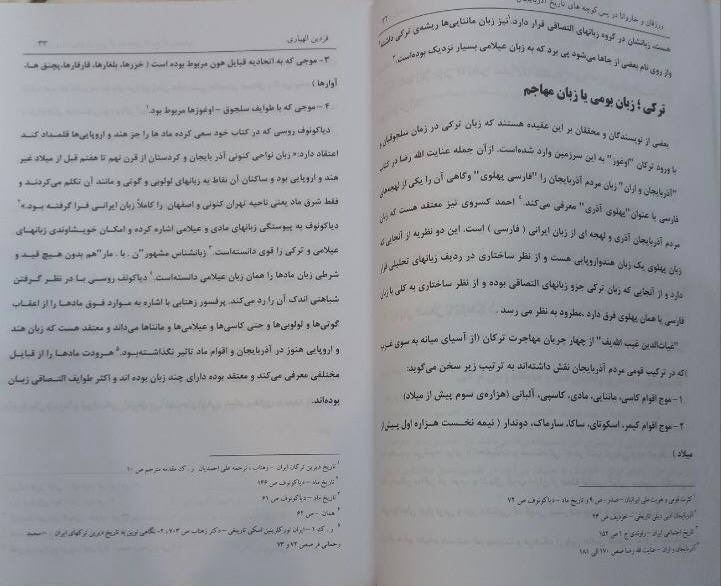 ورزقان و خاروانا در پس کوچه های تاریخ آذربایجان
۳۲
هست، زبانشان در گروه زبانهای التصاقی قرار دارد.¹ نیز زبان ماننایی‌ها ریشه‌ی ترکی داشته
واز روی نام بعضی از جاها می‌شود پی برد که به زبان عیلامی بسیار نزدیک بوده‌است.²
ترکی ؛ زبان بومی یا زبان مهاجم
بعضی از نویسندگان و محققان بر این عقیده هستند که زبان ترکی در زمان سلجوقیان و
با ورود ترکان "اوغوز" به این سرزمین وارد شده‌است. ازآن جمله عنایت الله رضا در کتاب
"آذربایجان و اران" زبان مردم آذربایجان را "فارسی پهلوی" وگاهی آن را یکی از لهجه‌های
فارسی با عنوان "پهلوی آذری" معرفی می‌کند.⁴ احمد کسروی نیز معتقد هست که زبان
مردم آذربایجان آذری و لهجه ای از زبان ایرانی ( فارسی ) است. این دو نظریه از آنجایی که
زبان پهلوی یک زبان هندواروپایی هست و از نظر ساختاری در ردیف زبانهای تحلیلی قرار
دارد و از آنجایی که زبان ترکی جزو زبانهای التصاقی بوده و از نظر ساختاری به کلی با زبان
فارسی یا همان پهلوی فرق دارد ،مطرود به نظر می رسد .
"غیاث‌الدین غیب الله‌یف" از چهار جریان مهاجرت ترکان (از آسیای میانه به سوی غرب
)که در ترکیب قومی مردم آذربایجان نقش داشته‌اند به ترتیب زیر سخن می‌گوید:
۱– موج اقوام کاسی، ماننایی، مادی، کاسپی، آلبانی (هزاره‌ی سوم پیش از میلاد)
۲– موج اقوام کیمر، اسکوتای، ساکا، سارماک، دوندار ( نیمه نخست هزاره اول پیش از
میلاد )
¹ کثرت قومی و هویت ملی ایرانیان – صدر، ص ۹ و تاریخ ماد – دیاکونوف ص ۷۲
² آذربایجان ادبی دیلی تاریخی – خودیف ص ۲۳
³ تاریخ اجتماعی ایران – راوندی ج ۱ ص ۱۵۲
⁴ آذربایجان و اران – عنایت الله رضا صص ۱۷۰ الی ۱۸۱
فردین الهیاری
۳۳
۳– موجی که به اتحادیه قبایل هون مربوط بوده است ( خزرها، بلغارها، قارقارها، پچنق ها،
آوارها )
۴ – موجی که با طوایف سلجوق – اوغوزها مربوط بود.¹
دیاکونوف روسی که در کتاب خود سعی کرده ماد ها را جز هند و اروپایی‌ها قلمداد کند
اعتقاد دارد:« زبان نواحی کنونی آذر بایجان و کردستان از قرن نهم تا هفتم قبل از میلاد غیر
هند و اروپایی بود و ساکنان آن نقاط به زبانهای لولوبی و گوتی و مانند آن تکلم می‌کردند و
فقط شرق ماد یعنی ناحیه تهران کنونی و اصفهان را کاملاً زبان ایرانی فرا گرفته بود.»²
دیاکونوف به پیوستگی زبانهای مادی و عیلامی اشاره کرده و امکان خویشاوندی زبانهای
عیلامی و ترکی را قوی دانسته‌است.³ زبانشناس مشهور "ن . یا . مار "هم بدون هیچ قید و
شرطی زبان مادها را همان زبان عیلامی دانسته‌است.⁴ دیاکونف روسی با در نظر گرفتن
شباهتی اندک آن را رد می‌کند. پرفسور زهتابی با اشاره به موارد فوق مادها را از اعقاب
گوتی‌ها و لولوبی‌ها و حتی کاسی‌ها و عیلامی‌ها و ماننا‌ها می‌داند و معتقد هست که زبان هند
و اروپایی هنوز در آذربایجان و اقوام ماد تاثیر نگذاشته‌بود.⁵ هرودت مادها را از قبایل
مختلفی معرفی می‌کند و معتقد بوده دارای چند زبان بوده اند و اکثر طوایف التصاقی زبان
بوده‌اند.
¹ تاریخ دیرین ترکان ایران – زهتاب، ترجمه علی احمدیان ر . ک مقدمه مترجم ص ۱۰
² تاریخ ماد – دیاکونوف ص ۱۴۶
³ تاریخ ماد – دیاکونوف ص ۶۱
⁴ همان – ص ۶۲
⁵ ر . ک ۱– ایران تورکلرینین اسکی تاریخی – دکتر زهتاب ص ۷۰۳ ، ۲– نگاهی نوین به تاریخ دیرین ترکهای ایران – محمد
رحمانی فر صص ۷۲ و ۷۳